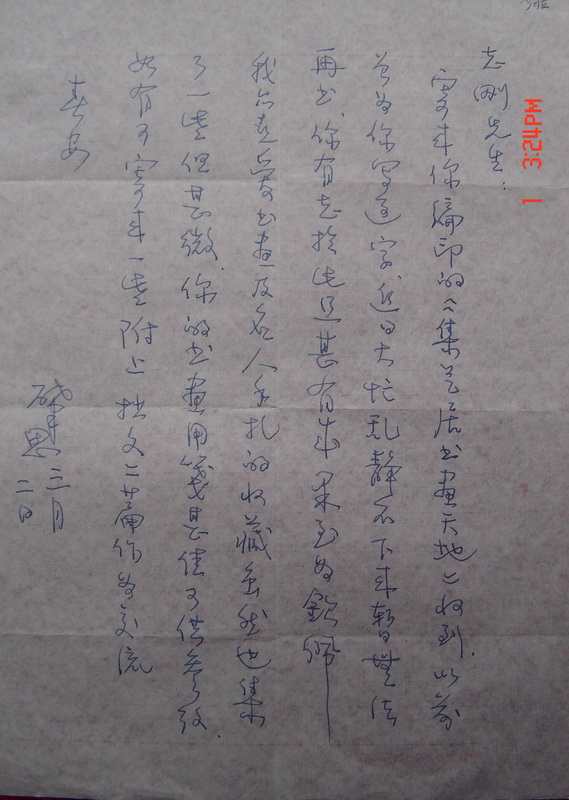 志刚先生：
寄来你编印的《集艺居书画天地》收到.以前
曾为你写过字,近日大忙乱静不下来暂无法
再书,你有志于此道甚有成果至为钦佩
我亦喜爱书画及名人手札的收藏虽然也集
了一些但甚微.你的书画用笺甚佳可供参考.
如有可寄来一些附上拙文二篇作为交流
春安
三月
二日
1 3:24PM